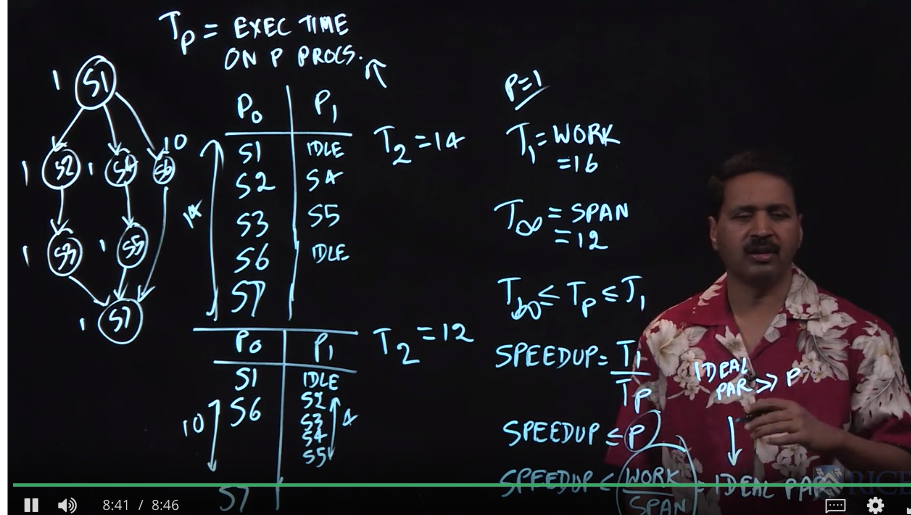 Tp = EXEC TIME
ON P PROCS.
1 S1
10
1 S2
1 S4
S6
1 S3
1 S5
1 S7
P0 P1
S1 IDLE
S2 S4
S3 S5
S6 IDLE
S7
14
T2 = 14
P0 P1
S1 IDLE
S6 S2
S3
S4
S5
S7
10
4
T2 = 12
P=1
T1 = WORK
= 16
T∞ = SPAN
= 12
T∞ ≤ Tp ≤ T1
SPEEDUP = T1
TP
SPEEDUP ≤ P
SPEEDUP ≤ WORK
SPAN
= IDEAL PAR
IDEAL
PAR >> P
RICE
8:41 / 8:46